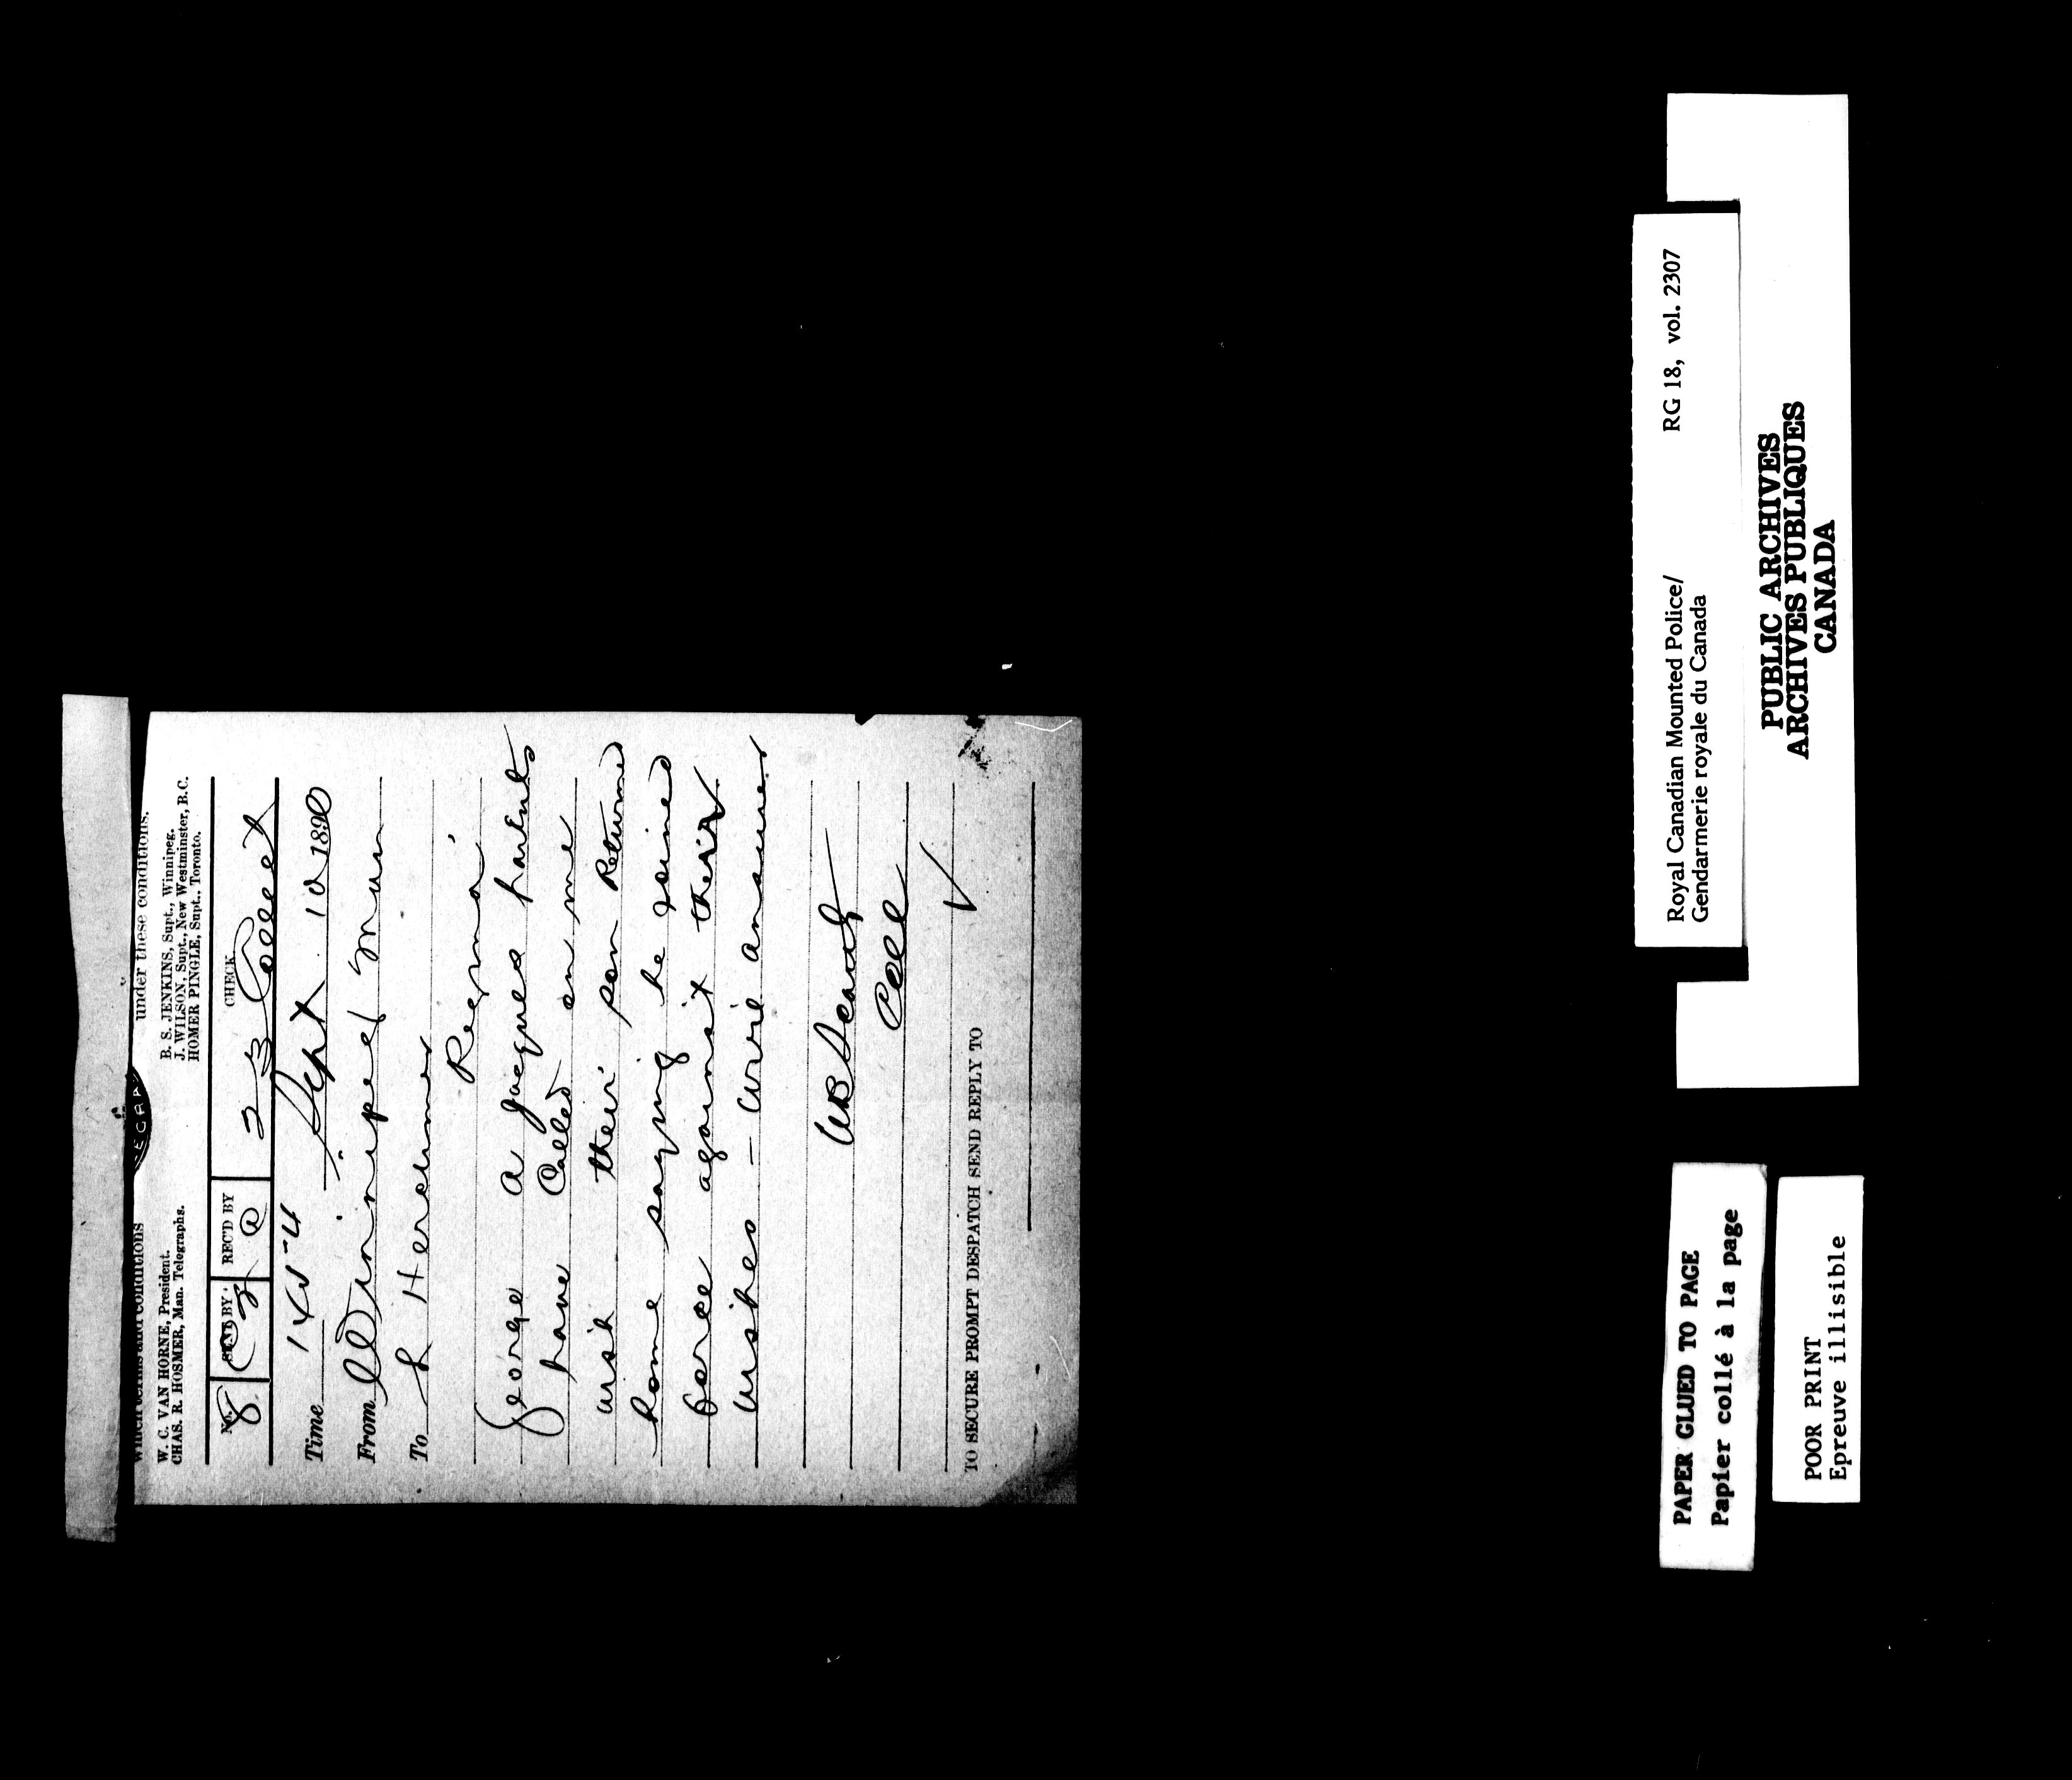 which terms and conditions under these conditions.
W. C. VAN HORNE, President.
CHAS. R. HOSMER, Man. Telegraphs.
B. S. JENKINS, Supt., Winnipeg.
J. WILSON, Supt., New Westminster, B.C.
HOMER PINGLE, Supt., Toronto.
No. SENT BY RECT'D BY CHECK
8 23 Collect
Time Sept 10 1890
From Winnipeg Man
To L Herchmer
Regina
George A Jacques parents
have Called on me
wish their son Returned
home saying he joined
force against their
wishes — wire answer
WB Scarth
Coll
TO SECURE PROMPT DESPATCH SEND REPLY TO
Royal Canadian Mounted Police/ RG 18, vol. 2307
Gendarmerie royale du Canada
PUBLIC ARCHIVES
ARCHIVES PUBLIQUES
CANADA
PAPER GLUED TO PAGE
Papier collé à la page
POOR PRINT
Epreuve illisible